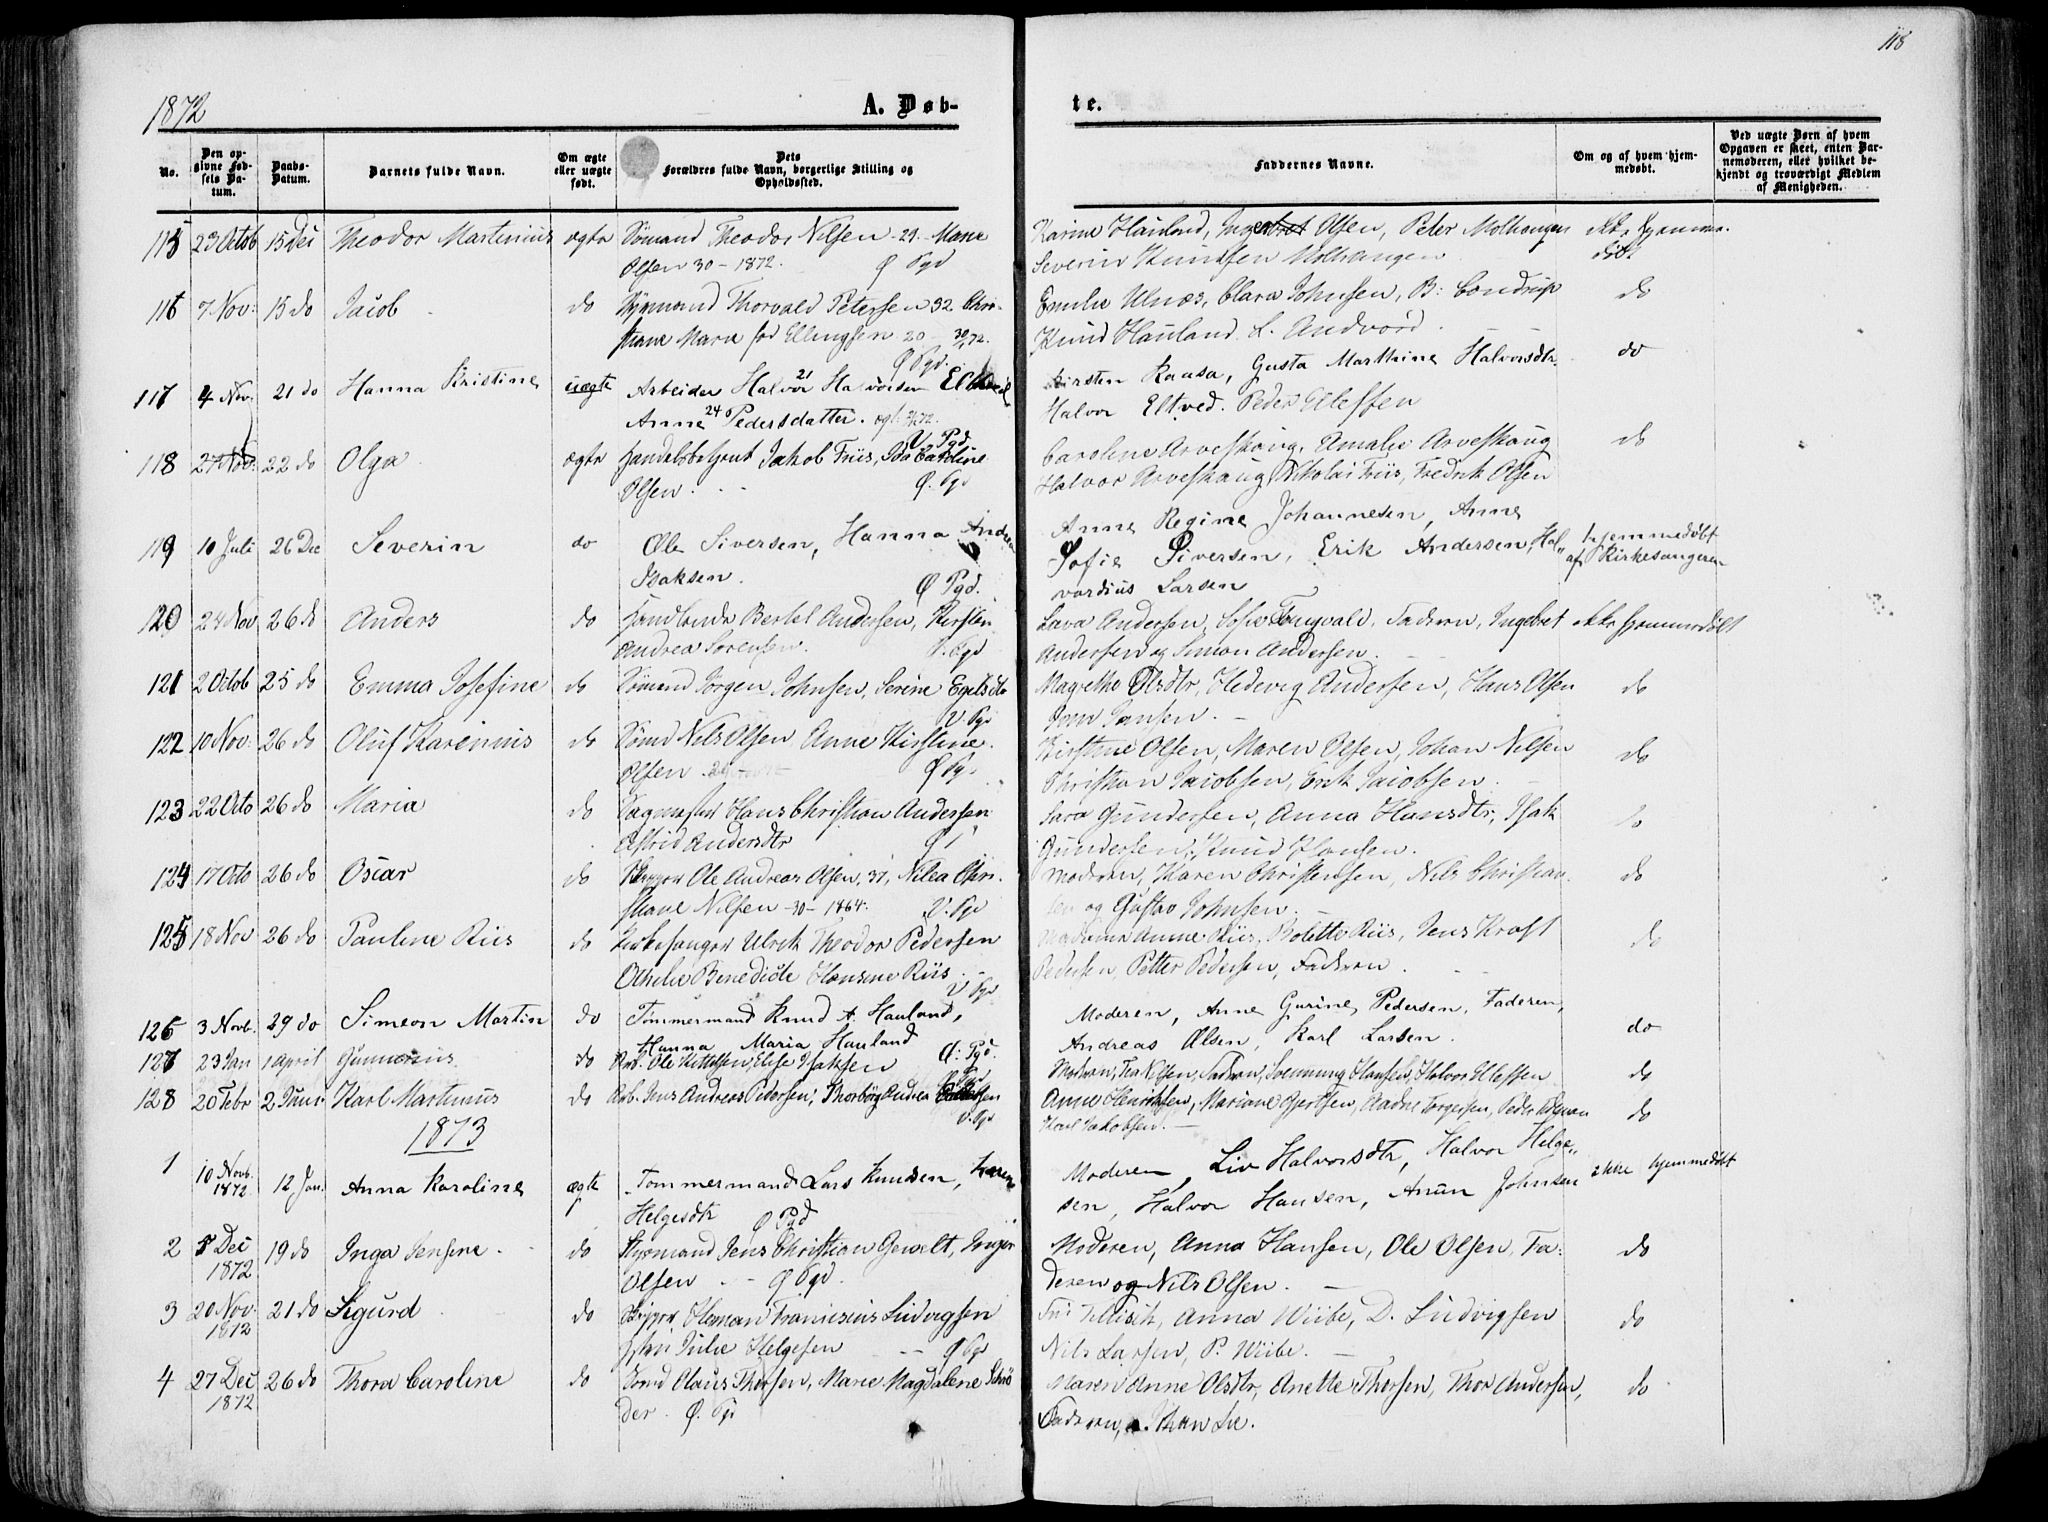 118
1872
A. Døb-
te.
No.
Den op-
givne Fød-
sels Da-
tum.
Daabs-
Datum.
Barnets fulde Navn.
Om ægte
eller uægte
født.
Dets
Forældres fulde Navn, borgerlige Stilling og
Opholdssted.
Faddernes Navne.
Om og af hvem hjem-
medøbt.
Ved uægte Børn af hvem
Opgaven er skeet, enten Bar-
nemoderen, eller hvilket be-
kjendt og troværdigt Medlem
af Menigheden.
115 23 Octob 15 Dec Theodor Martinius ægte Sømand Theodor Nilsen 29. Maria Karine Hauland, Olsen, Peter Molhaugen ikke hjemme-
Olsen 30 - 1872. Ø Pgd Severin Knudsen Molhaugen døbt
116 7 Nov: 15 do Jacob do Styrmand Thorvald Petersen 32 Chri- Emilie Ulnæs, Clara Johnsen, B: Condrup do
stiane Marie fød Ellingsen 20 - Ø Pgd. Knud Hauland. L. Andvord.
117 4 Nov. 21 do Hanna Kristine uægte Arbeider Halvor 21 Halvorsen Kirsten Kaasa, Gusta Marthine Halvorsdtr. do
Anne 24 Pedersdatter. V Pgd Halvor Eltved. Peder Ulefsen
118 27 Nov: 22 do Olga ægte Handelsbetjent Jakob Friis, Ida Caroline Caroline Arveskoug, Amalie Arveskoug do
Olsen. Ø. Pgd Halvor Arveskoug, Nikolai Friis, Fredrik Olsen
119 10 Juli 26 Dec Severin do Ole Siversen, Hanna Andrea Anne Regine Johannesen, Anne
Isaksen. Ø Pgd. Sofie Siversen, Erik Andersen, Hal- hjemmedøbt
vardius Larsen af Kirkesangeren
120 24 Nov 26 do Anders do Handlende Bertel Andersen, Kirsten Lava Andersen, Sofie Tangvald, Faderen, Ingebret ikke hjemmedøbt
Andrea Sørensen. V. Pgd Andersen og Simon Andersen.
121 2 Octob 25 do Emma Josefine do Sømand Jørgen Johnsen, Serine Egelsdtr Magrethe Olsdtr, Hedevig Andersen, Hans Olsen do
V. Pgd Jansen.
122 10 Nov: 26 do Oluf Karenius do Sømd Nils Olsen Anne Kirstine Kirstine Olsen, Maren Olsen, Johan Nilsen do
Olsen Ø Pg. Christian Jacobsen, Erik Jacobsen.
123 22 Octo 26 do Maria do Hans Christian Andersen Sara Gundersen, Anna Hansdtr, Isak
Astrid Andersdtr Gundersen, Knud Hansen.
124 17 Octo 26 do Oscar do Skipper Ole Andreas Olsen, 37, Nilea Chri- Moderen, Karen Christensen, Nils Christian- do
stiane Nilsen - 30 - 1864. V. Pgd sen og Gustav Johnsen.
125 18 Nov 26 do Pauline Riis do Kirkesanger Ulrik Theodor Pedersen Madame Anne Riis, Bolette Riis, Jens Kraft do
Othelie Benedicte Hansine Riis V. Pgd Pedersen, Petter Pedersen, Faderen.
126 3 Novb. 29 do Simeon Martin do Tømmermand Knud A. Hauland, Moderen, Anne Gurine Pedersen, Faderen, do
Hanna Maria Hauland Ø: Pgd. Andreas Olsen, Karl Larsen.
127 23 Jan 1 April Gunnarius do Arb. Ole Kittelsen, Elise Isaksen Moderen, Faderen, Svenning Hansen, Halvor Ulessen do
128 20 Febr 2 Juni Karl Martinius do Arb. Jens Andreas Pedersen, Thorborg Andrea Anne Henriksen, Mariane Gjertsen, Aadne Torgersen, Peder do
V. Pgd Karl Jakobsen.
1873
1 10 Novb. 1872. 12 Jan. Anna Karoline ægte Tømmermand Lars Knudsen, Karen Moderen, Liv Halvorsdtr, Halvor Helge- ikke hjemmedøbt
Helgesdtr Ø Pgd sen, Halvor Hansen, Anun Johnsen
2 8 Dec 1872 19 do Inga Jensine do Styrmand Jens Christian Gewelt, Inger Moderen, Anna Hansen, Ole Olsen, Fa- do
Olsen Ø Pgd. deren og Nils Olsen.
3 20 Nov. 1872 21 do Sigurd do Skipper Herman Franciscus Ludvigsen Anna Wiibe, D. Ludvigsen do
Julie Helgesen Ø Pgd Nils Larsen, P. Wiibe.
4 27 Dec 1872 26 do Thora Caroline do Sømd Olaus Thorsen, Marie Magdalene Schrø- Maren Anne Olsdtr, Anette Thorsen, Thor Andersen, do
der. Ø. Pgd Faderen, Johan Lie.